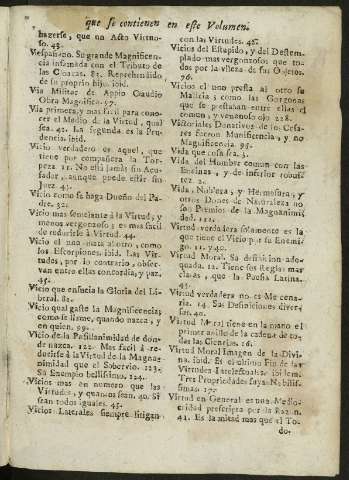 que se contienen en este Volumen.
hazerse, que un Acto Virtuo-
so. 43.
Vespasiano. Su grande Magnificen-
cia infamada con el Tributo de
las Cloacas. 82. Reprehendido,
de su proprio hijo. ibid.
Via Militar de Appio Claudio
Obra Magnifica. 97.
Via primera, y mas facil para cono-
cer el Medio de la Virtud, qual
sea. 42. La segunda es la Pru-
dencia. ibid.
Vicio verdadero es aquel, que
tiene por compañera la Tor-
peza 21. No está jamás sin Acu-
sador, aunque puede estár sin
Juez. 43.
Vicio como se haga Dueño del Pa-
dre. 32.
Vicio mas semejante à la Virtud, y
menos vergonzoso; es mas facil
de reducirse à Virtud. 44.
Vicio el uno mata al otro, como
los Escorpiones. ibid. Las Vir-
tudes, por lo contrario, obser-
van entre ellas concordia, y paz.
45.
Vicio que ensucia la Gloria del Li-
beral. 82.
Vicio qual gaste la Magnificencia;
como se llame, quando nazca, y
en quien. 99.
Vicio de la Pusilanimidad de don-
de nazca. 122. Mas facil à re-
ducirse à la Virtud de la Magna-
nimidad que el Sobervio. 123.
Su Exemplo bellissimo. 124.
Vicios mas en numero que las
Virtudes, y quantos sean. 40. Si
sean todos iguales. 45.
Vicios Laterales siempre litigan
con las Virtudes. 45.
Vicios del Estupido, y del Destem-
plado mas vergonzosos que to-
dos por la vileza de sus Objetos.
76.
Vicios el uno presta al otro su
Malicia; como las Gorgonas
que se prestaban entre ellas el
comun, y venenoso ojo. 228.
Victoriales Donativos de los Cesa-
res fueron Munificencia, y no
Magnificencia. 95.
Vida que cosa sea. 3.
Vida del Hombre comun con las
Encinas, y de inferior robustez
2.
Vida, Nobleza, y Hermosura, y
otros Dones de Naturaleza no
son Premios de la Magnanimi-
dad. 112.
Virtud verdadera solamente es la
que tiene el Vicio por su Enemi-
go. 11. 240.
Virtud Moral. Sa definicion ade-
quada. 12. Tiene sus Reglas mas
claras, que la Poesia Latina.
43.
Virtud verdadera no es Mecena-
ria. 14. Sas Definiciones diver-
sas. 40.
Virtud Moral tiene en la mano el
primer anillo de la cadena de to-
das las Ciencias. 16.
Virtud Moral Imagen de la Divi-
na. ibid. Es el ultimo Fin de las
Virtudes Intelectuales. ibidem.
Tres Propriedades suyas Nobilis-
simas. 17.
Virtud en General es una Medio-
cridad prescripta por la Razon.
41. Es la mitad mas que el To-
do.